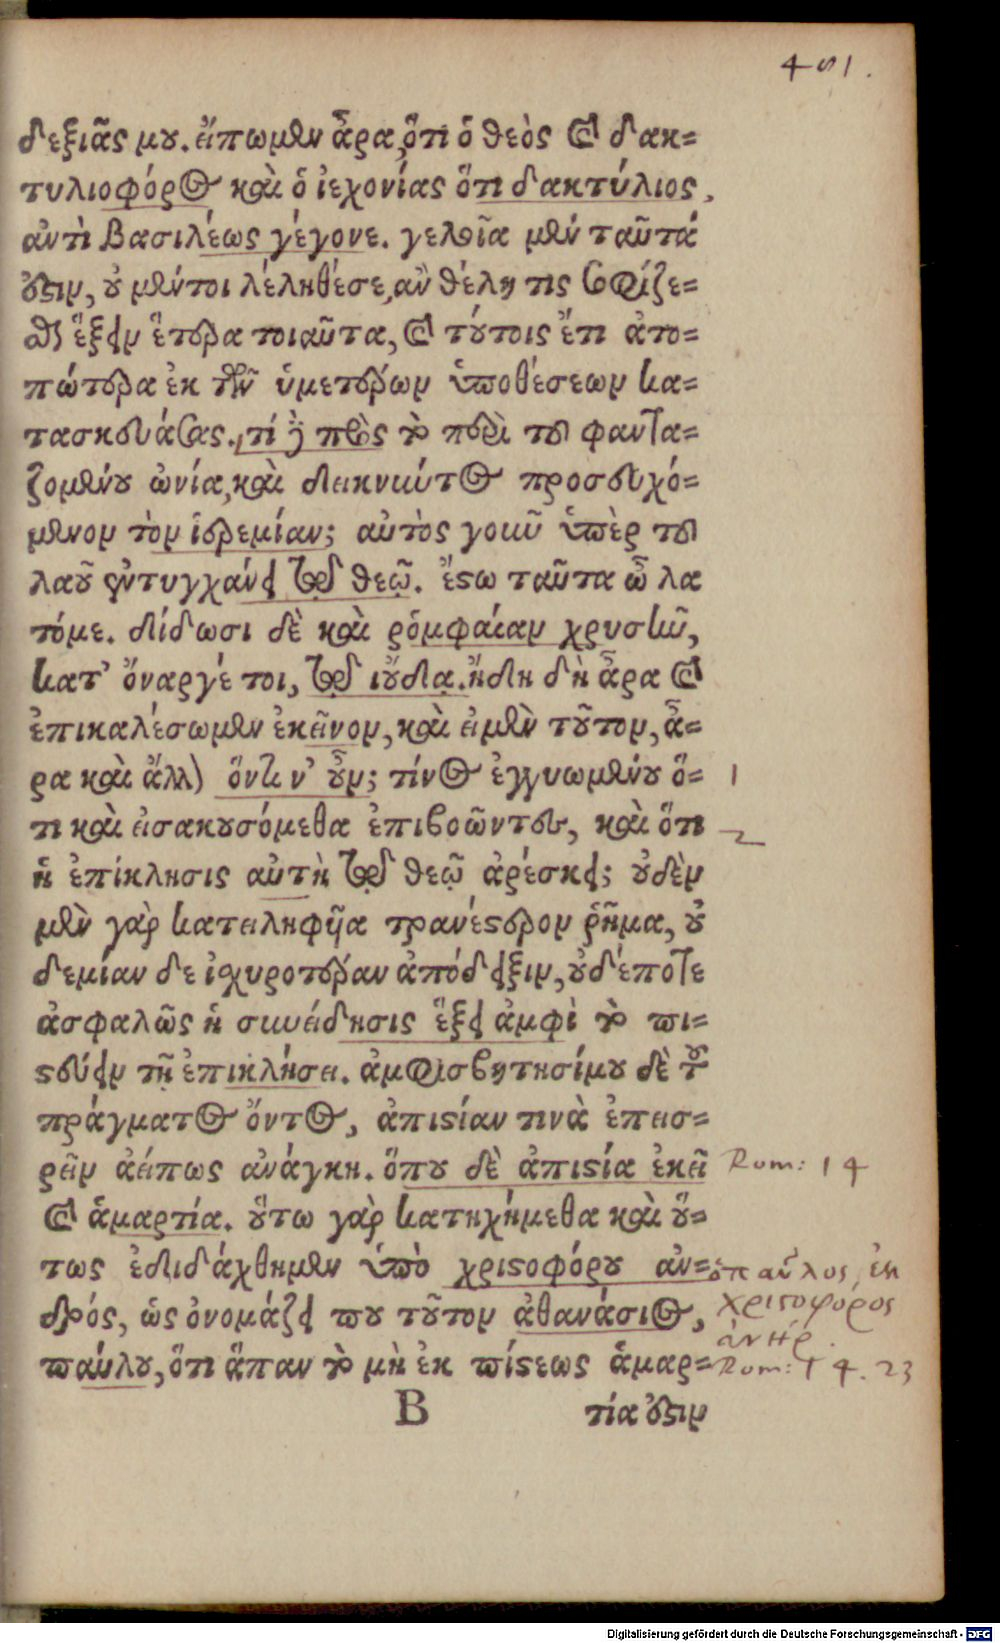 491.
δεξιᾶς μου. εἴπωμεν ἆρα, ὅτι ὁ θεὸς καὶ δακ=
τυλιοφόρος καὶ ὁ ἰεχονίας ὅτι δακτύλιος,
ἀντὶ βασιλέως γέγονε. γελοῖα μὲν ταῦτά
ἐστιν, οὐ μέντοι λέληθέσε, ἂν θέλῃ τις σοφίζε=
σθαι ἕξειν ἕτερα τοιαῦτα, καὶ τούτοις ἔτι ἀτο=
πώτερα ἐκ τῶν ὑμετέρων ὑποθέσεων κα=
τασκευάσας. τί δὲ πρὸς τὸ περὶ τοῦ φαντα=
ζομένου ὠνία, καὶ δεικνύντος προσευχό=
μενον τὸν ἱερεμίαν; αὐτὸς γοῦν ὑπὲρ τοῦ
λαοῦ ἐντυγχάνει τῷ θεῷ. ἔστω ταῦτα ὦ λα
τόμε. δίδωσι δὲ καὶ ῥομφαίαν χρυσῆν,
κατ' ὄναργέ τοι, τῷ ἰούδᾳ. ἤδη δὴ ἆρα καὶ
ἐπικαλέσωμεν ἐκεῖνον, καὶ εἰ μὲν τοῦτον, ἆ=
ρα καὶ ἄλλον ὅντιν' οὖν; τίνος ἐγγυωμένου ὅ=
τι καὶ εἰσακουσόμεθα ἐπιβοῶντες, καὶ ὅτι
ἡ ἐπίκλησις αὐτὴ τῷ θεῷ ἀρέσκει; οὐδὲν
μὲν γὰρ κατειληφυῖα τρανέστερον ῥῆμα, οὐ
δεμίαν δε ἰσχυροτέραν ἀπόδειξιν, οὐδέποτε
ἀσφαλῶς ἡ συνείδησις ἕξει ἀμφὶ τὸ πι=
στεύειν τῇ ἐπικλήσει. ἀμφισβητησίμου δὲ τοῦ
πράγματος ὄντος, ἀπιστίαν τινὰ ἐπεισ=
ρεῖν ἀείπως ἀνάγκη. ὅπου δὲ ἀπιστία ἐκεῖ
καὶ ἁμαρτία. οὕτω γὰρ κατηχήμεθα καὶ οὕ=
τως ἐδιδάχθημεν ὑπὸ χριστοφόρου ἀν=
δρός, ὡς ὀνομάζει που τοῦτον ἀθανάσιος,
παύλου, ὅτι ἅπαν τὸ μὴ ἐκ πίστεως ἁμαρ=
B τία ἐστιν
1
2
Rom: 14
ὁ παῦλος, ἐκ
χριστοφόρος
ἀνήρ.
Rom: 14. 23
Digitalisierung gefördert durch die Deutsche Forschungsgemeinschaft - DFG